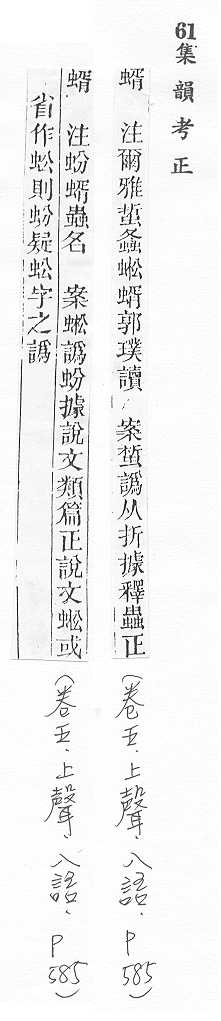 61集韻考正
蝑 注爾雅蜤螽蜙蝑郭璞讀 案蜤譌从折據釋蟲正
(卷五.上聲.八語.P585)
蝑 注蚣蝑蟲名 案蜙譌蚣據說文類篇正說文蜙或
省作蚣則蚡疑蚣字之譌
(卷五.上聲.八語.P585)